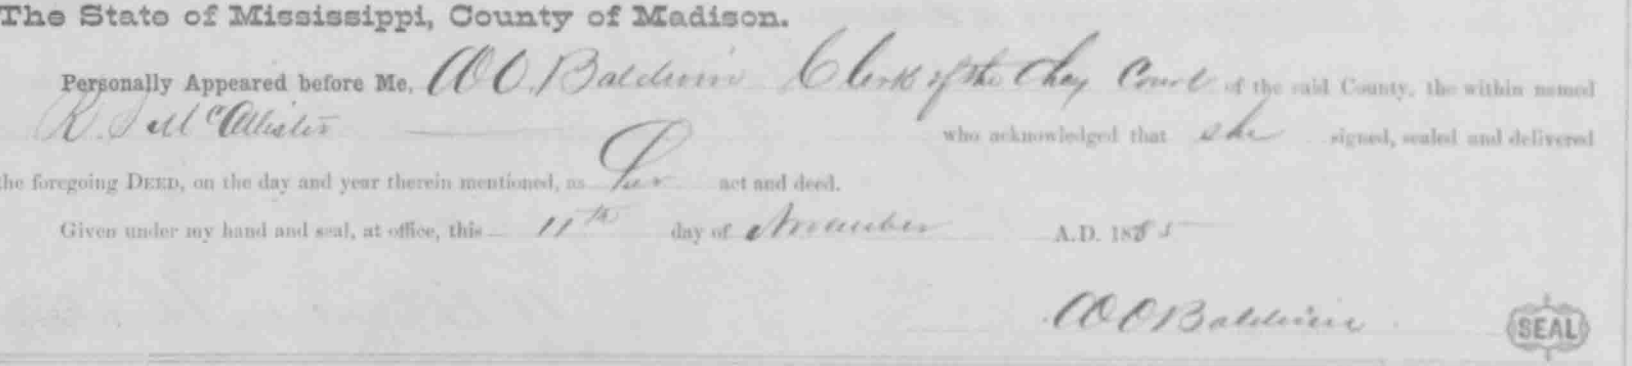 The State of Mississippi, County of Madison.
Personally Appeared before Me, W O. Baldwin Clerk of the Chy Court of the said County, the within named
R. McCallister who acknowledged that she signed, sealed and delivered
the foregoing DEED, on the day and year therein mentioned, as her act and deed.
Given under my hand and seal, at office, this 11th day of November A.D. 1885
W O Baldwin
SEAL